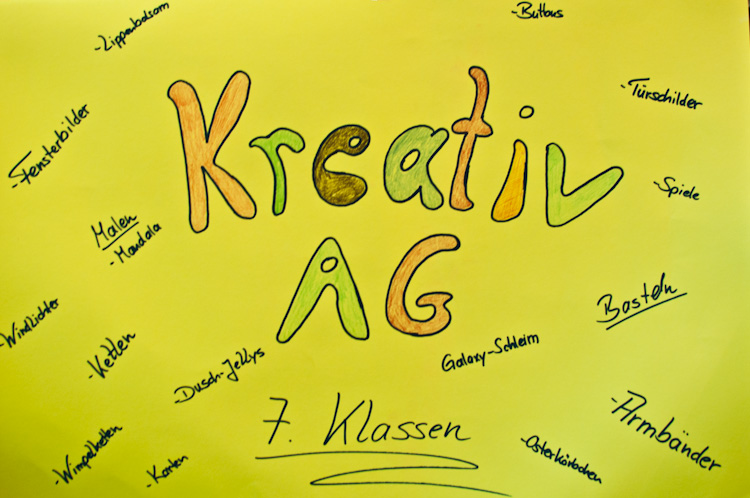 -Lippenbalsam
-Buttons
-Türschilder
-Fensterbilder
Kreativ
AG
-Spiele
Malen
-Mandala
Basteln
-Windlichter
-Ketten
Galaxy-Schleim
-Dusch-Jellys
7. Klassen
-Armbänder
-Wimpelketten
-Karten
-Osterkörbchen